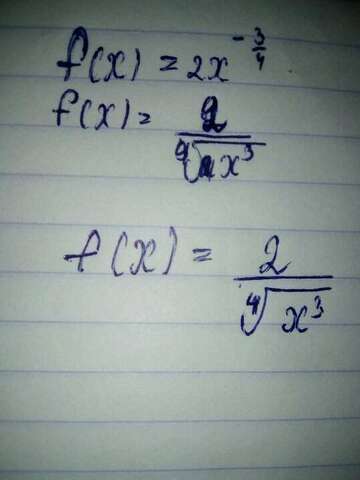 f(x) = 2x^{-3/4}
f(x) = 2/∜x³
f(x) = 2/∜x³